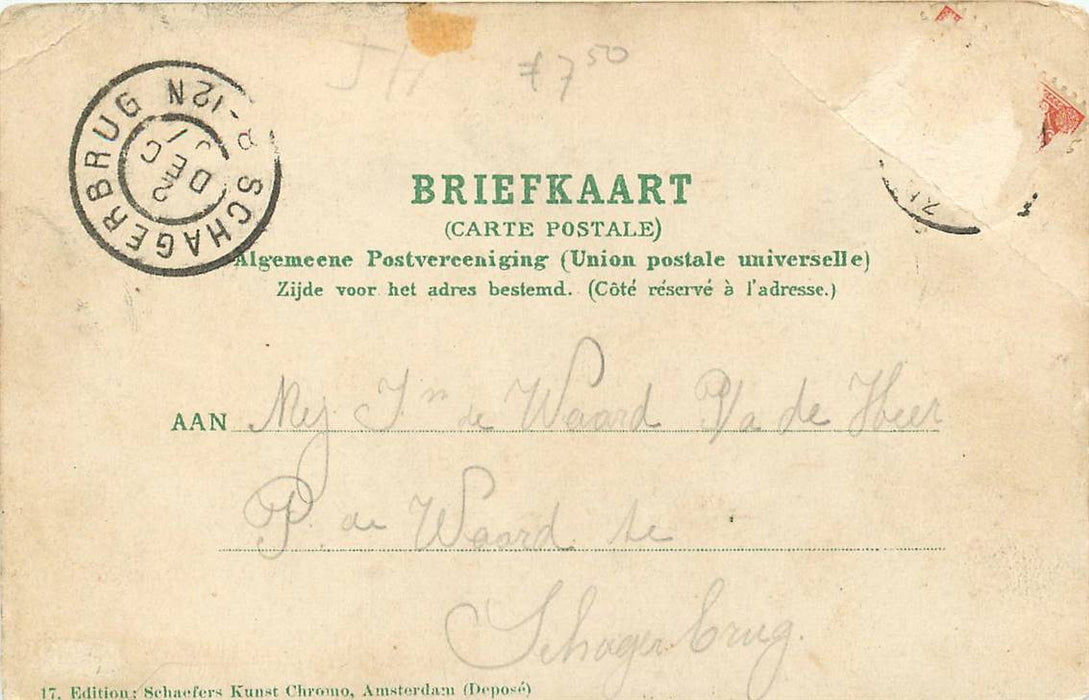 J H ƒ7 50
SCHAGERBRUG
8-12N
2
DEC
BRIEFKAART
(CARTE POSTALE)
Algemeene Postvereeniging (Union postale universelle)
Zijde voor het adres bestemd. (Côté réservé à l'adresse.)
AAN Mej. Jn de Waard P/a de Heer
P. de Waard te
Schagerbrug.
17. Edition: Schaefers Kunst Chromo, Amsterdam (Deposé)